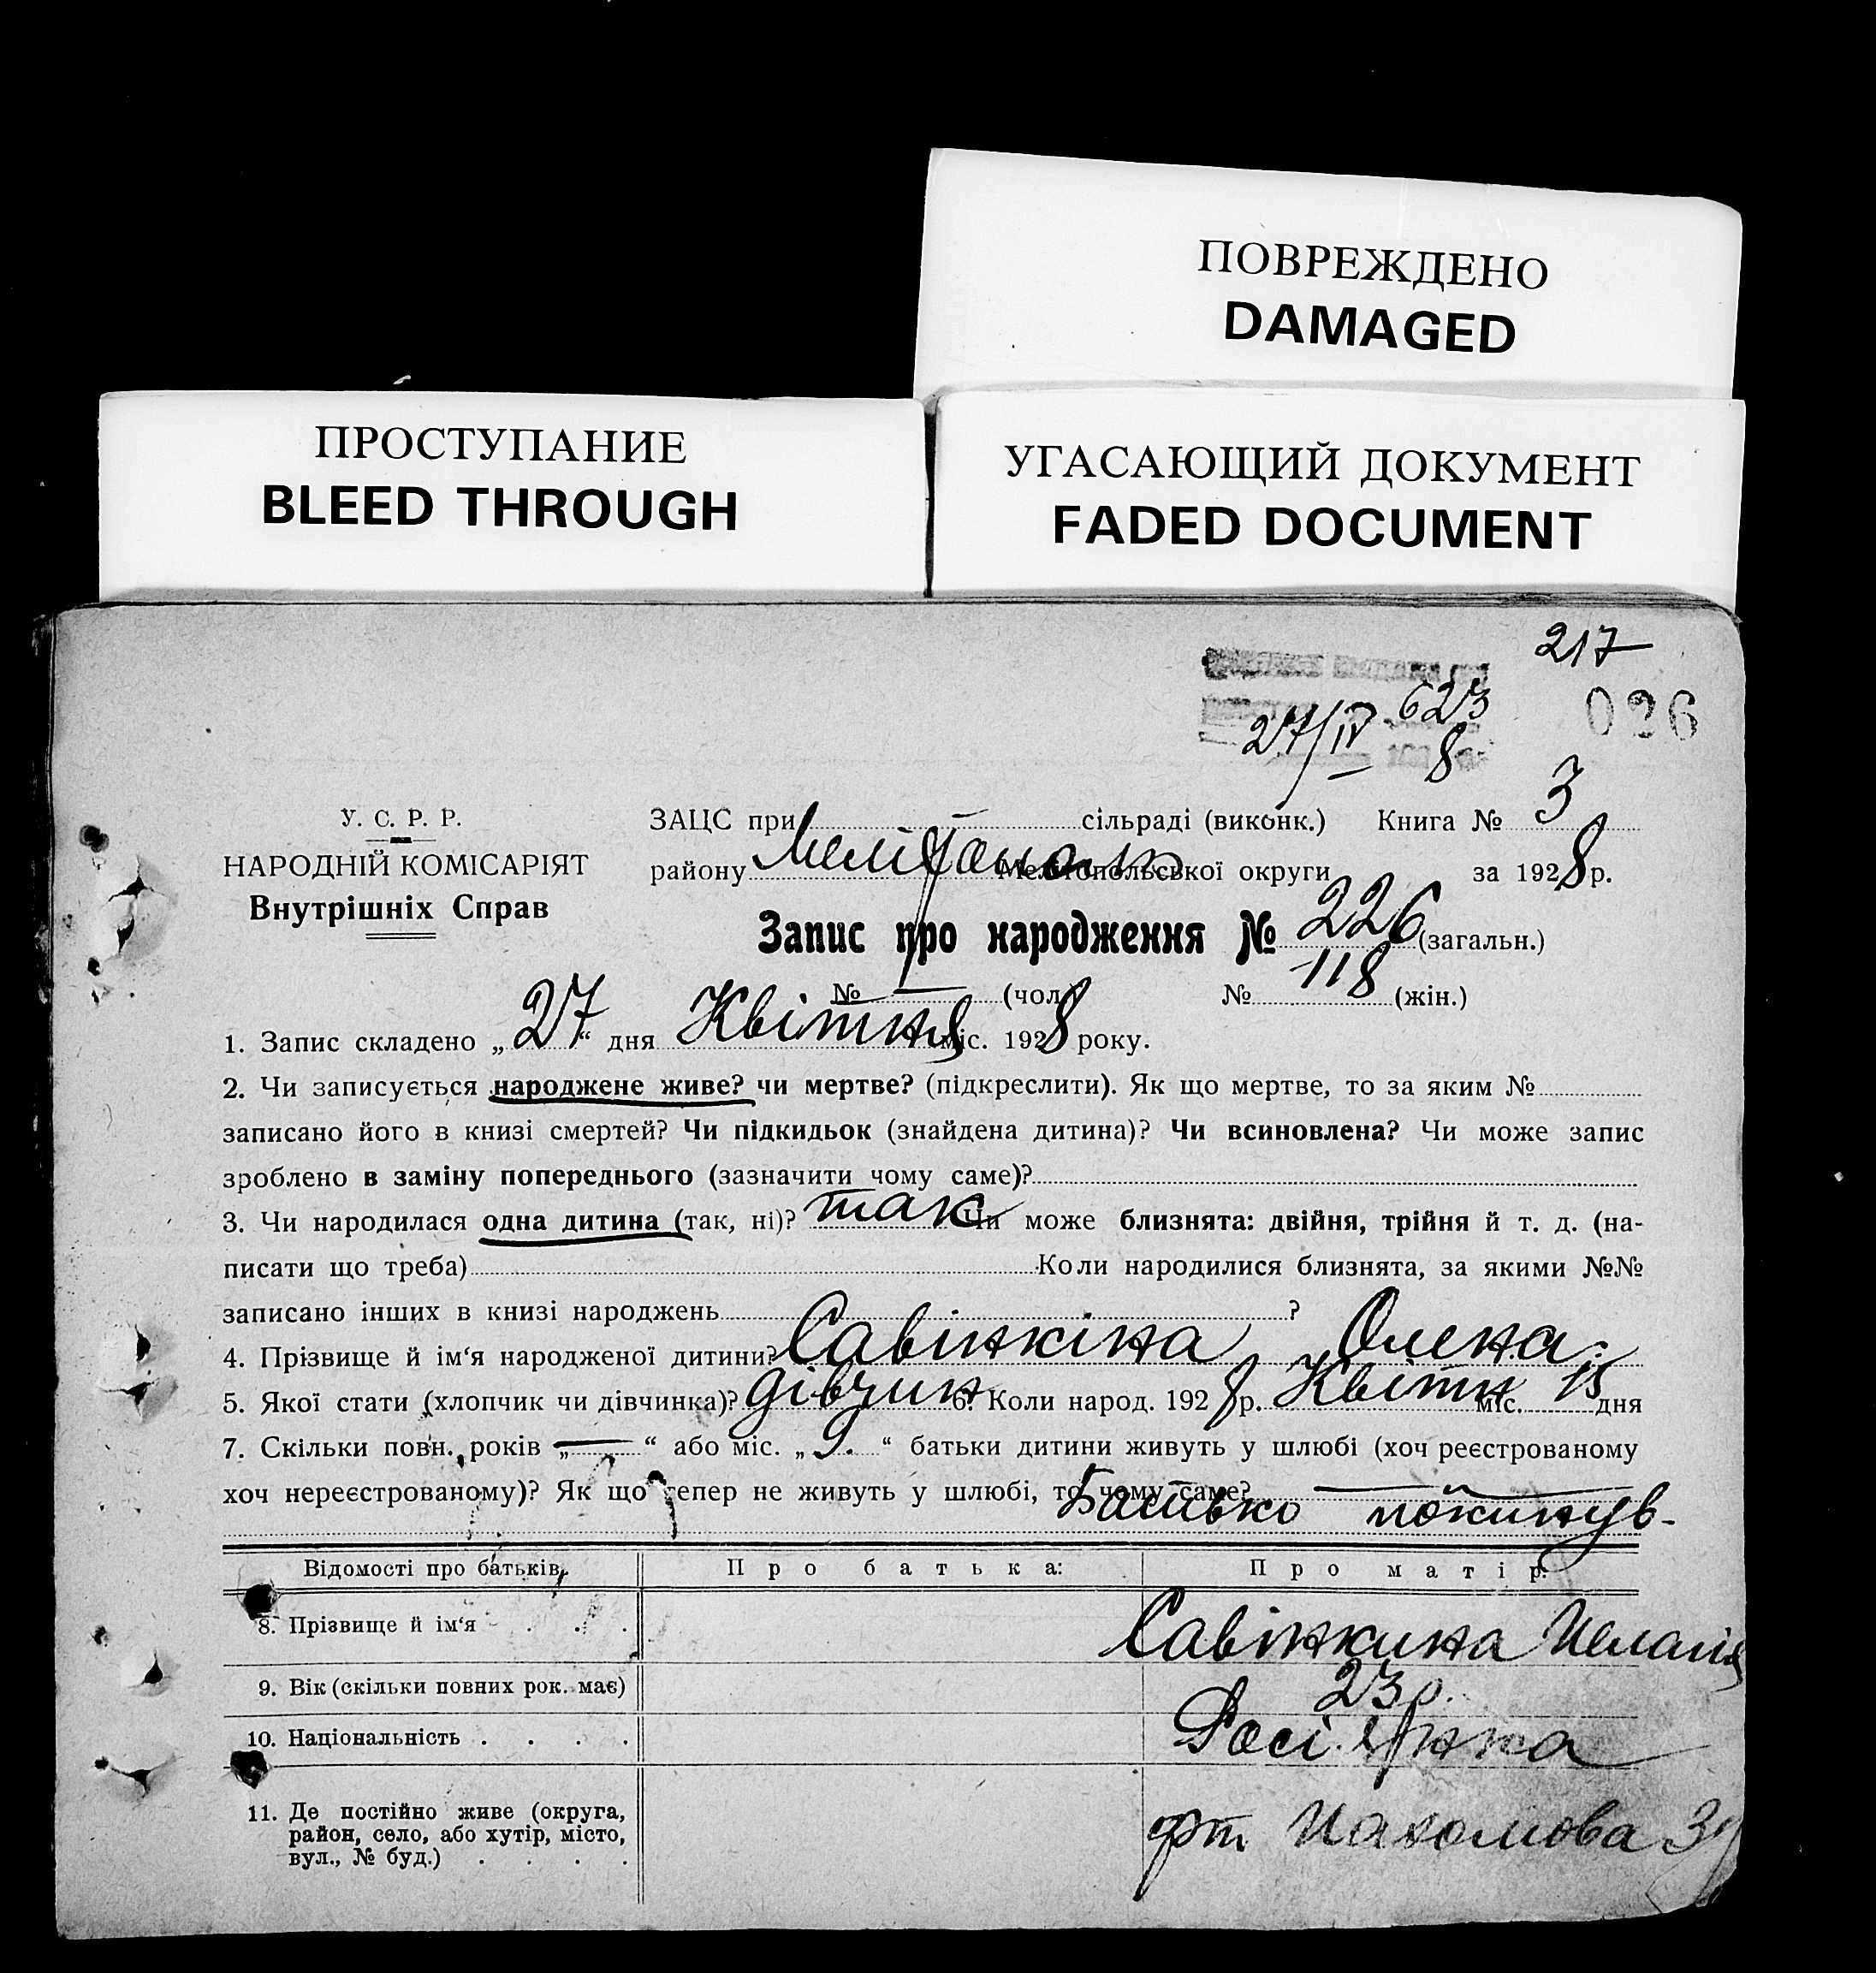 ПОВРЕЖДЕНО
DAMAGED
ПРОСТУПАНИЕ
BLEED THROUGH
УГАСАЮЩИЙ ДОКУМЕНТ
FADED DOCUMENT
217
623
27/IV 8
026
У. С. Р. Р.
НАРОДНІЙ КОМІСАРІЯТ
Внутрішніх Справ
ЗАЦС при сільраді (виконк.) Книга № 3
району Мелітопольської округи за 1928 р.
Запис про народження № 226 (загальн.)
№ — (чол.) № 118 (жін.)
1. Запис складено „27“ дня Квітня міс. 1928 року.
2. Чи записується народжене живе? чи мертве? (підкреслити). Як що мертве, то за яким №
записано його в книзі смертей? Чи підкидьок (знайдена дитина)? Чи всиновлена? Чи може запис
зроблено в заміну попереднього (зазначити чому саме)?
3. Чи народилася одна дитина (так, ні)? так Чи може близнята: двійня, трійня й т. д. (на-
писати що треба) Коли народилися близнята, за якими №№
записано інших в книзі народжень ?
4. Прізвище й ім‘я народженої дитини? Савінкіна Олена
5. Якої стати (хлопчик чи дівчинка)? дівчин 6. Коли народ. 1928 р. Квітн міс. 15 дня
7. Скільки повн. років „—“ або міс. „9.“ батьки дитини живуть у шлюбі (хоч реєстрованому
хоч нереєстрованому)? Як що тепер не живуть у шлюбі, то чому саме? —
Батько покинув.
Відомості про батьків. Про батька: Про матір:
8. Прізвище й ім‘я . . . Савінкина Пелагія
9. Вік (скільки повних рок. має) 23 р.
10. Національність . . . . Росіянка
11. Де постійно живе (округа,
район, село, або хутір, місто,
вул., № буд.) . . . . Пахомова